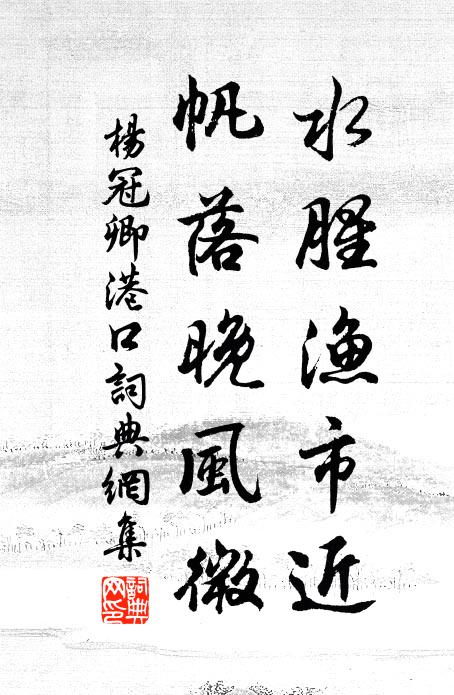 水腥漁市近
帆落晚風微
楊冠卿港口詞典網集
詞典網印